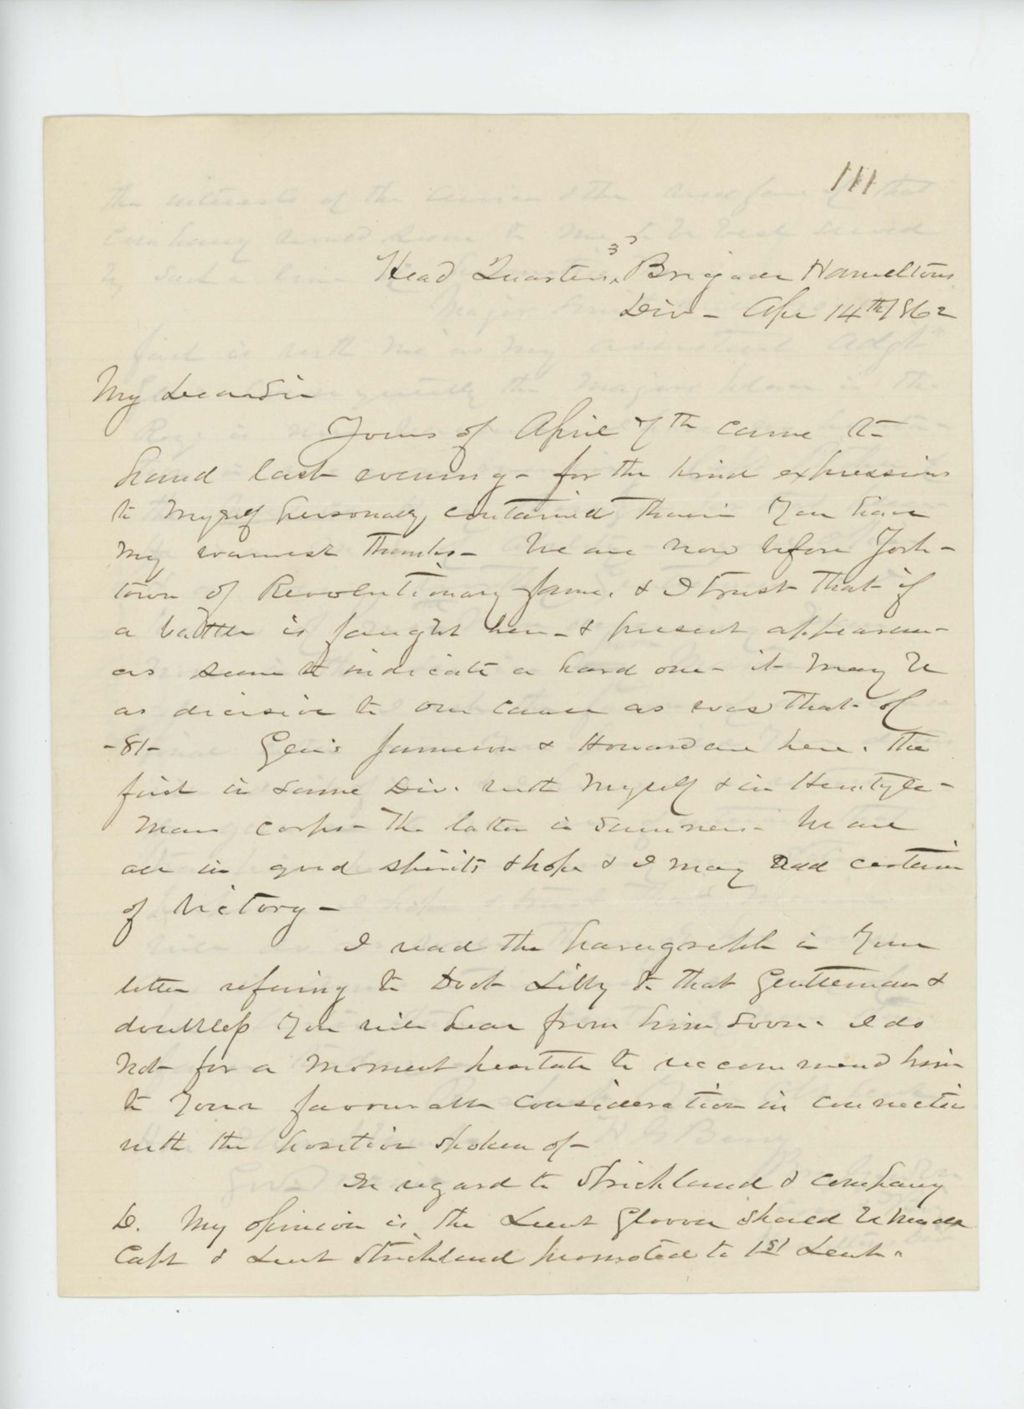 111
Head Quarters, 3d Brigade Hamiltons
Div - Apr 14th 1862
My Dear Sir
Yours of April 7th came to
hand last evening - for the kind expressions
to myself personally contained therein You have
my warmest thanks - We are now before York-
town of Revolutionary fame, & I trust that if
a battle is fought here - & present appearan-
as seem to indicate a hard one - it may be
as decisive to our cause as was that of
-81- Gen's Jameson & Howard are here. The
first in same Div. with myself & in Heintzle-
mans corps - The latter in Sumners - We are
all in good spirits & hope & I may add certain
of Victory -
I read the paragraph in Your
letter refering to Doct Libby to that Gentleman &
doubtless You will hear from him soon. I do
not for a moment hesitate to reccommend him
to Your favourable consideration in connection
with the position spoken of -
In regard to Strickland & company
D. My opinion is the Lieut Glover should be made
Capt & Lieut Strickland promoted to 1st Lieut.